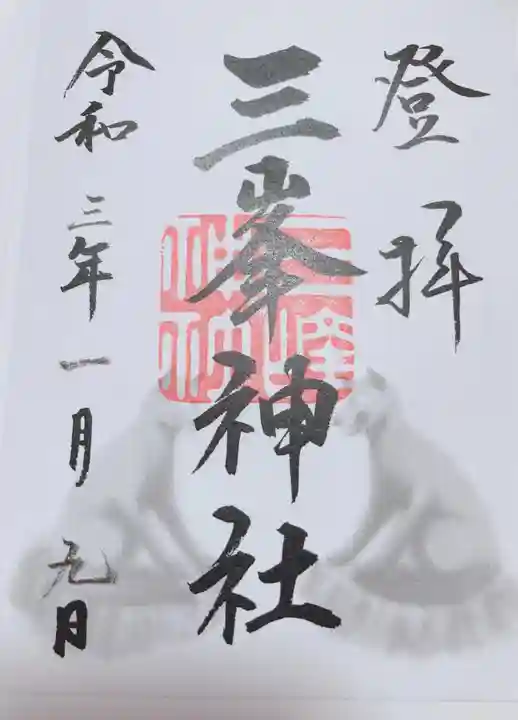 登拝
三峯神社
令和三年一月九日